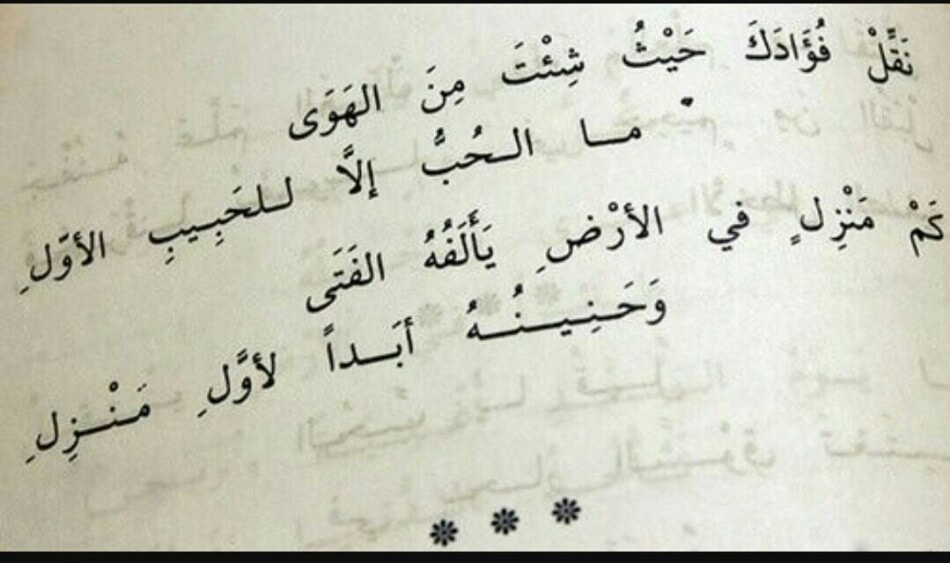 نَقِّلْ فُؤَادَكَ حَيْثُ شِئْتَ مِنَ الهَوَى
ما الحُبُّ إلاَّ للحَبِيبِ الأوَّلِ
كَمْ مَنْزِلٍ في الأرْضِ يَأْلَفُهُ الفَتَى
وَحَنِينُهُ أبَداً لأوَّلِ مَنْزِلِ